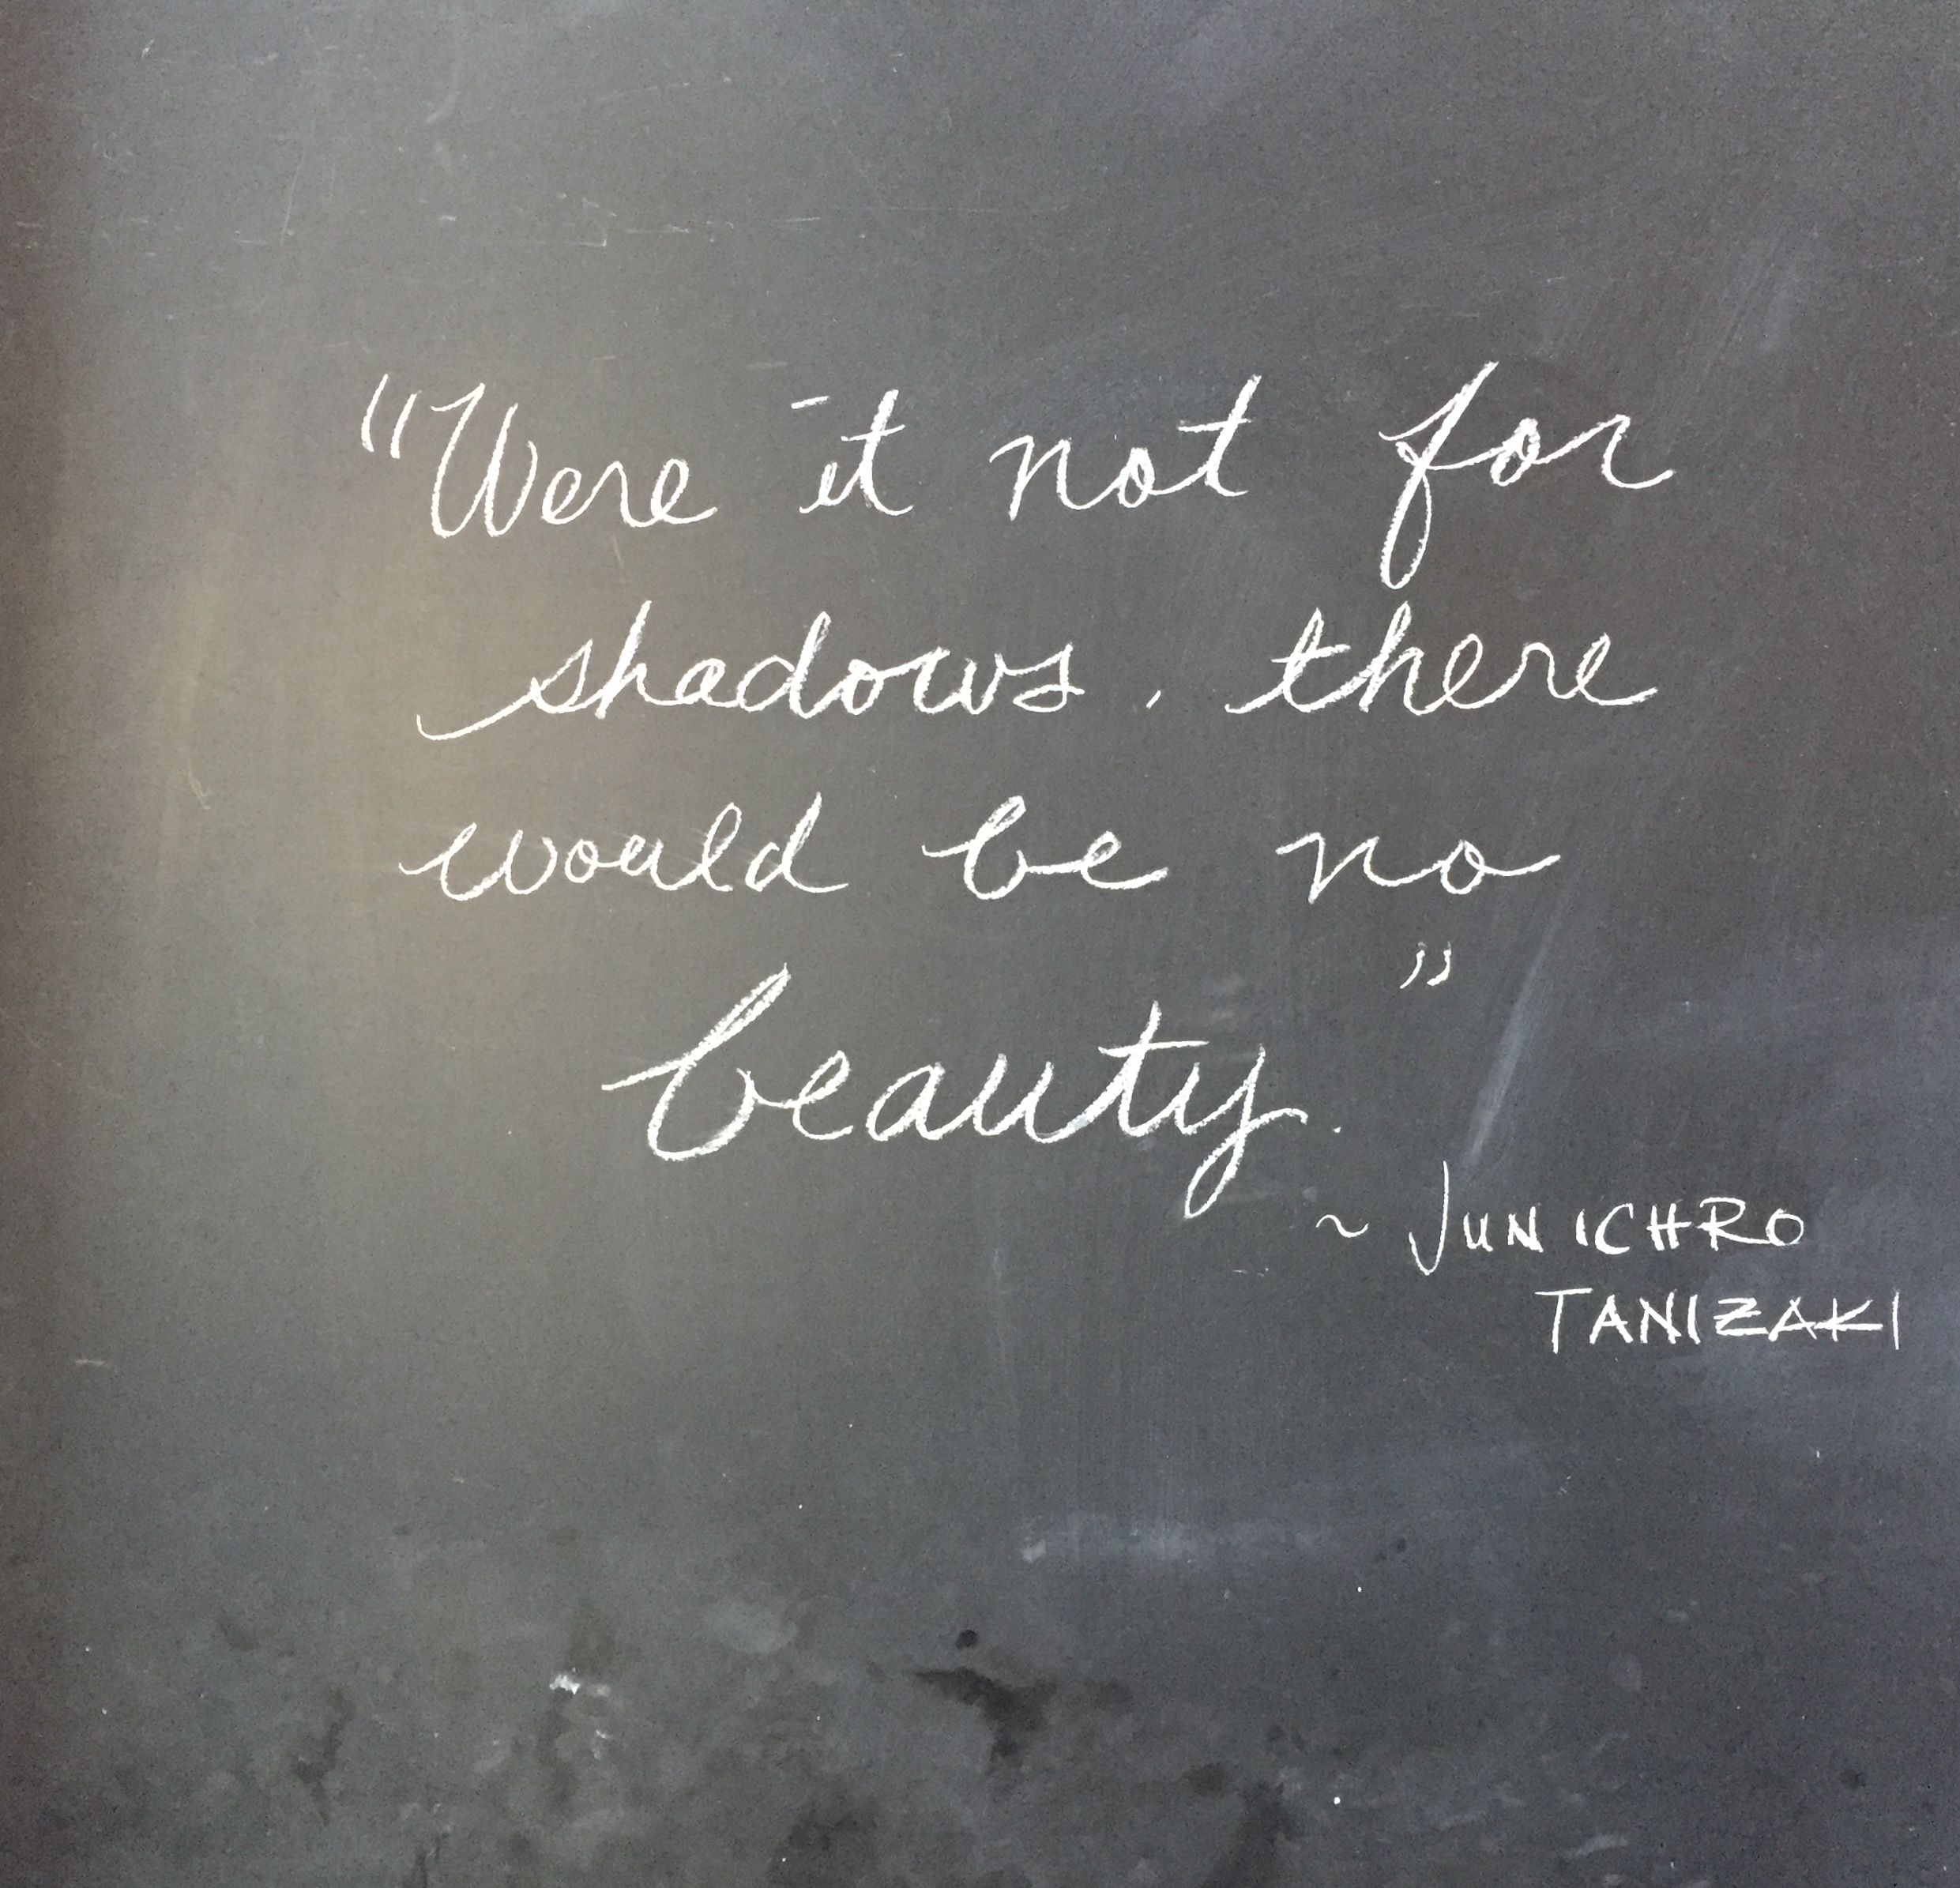 "Were it not for
shadows, there
would be no
beauty."
~ JUNICHRO
TANIZAKI